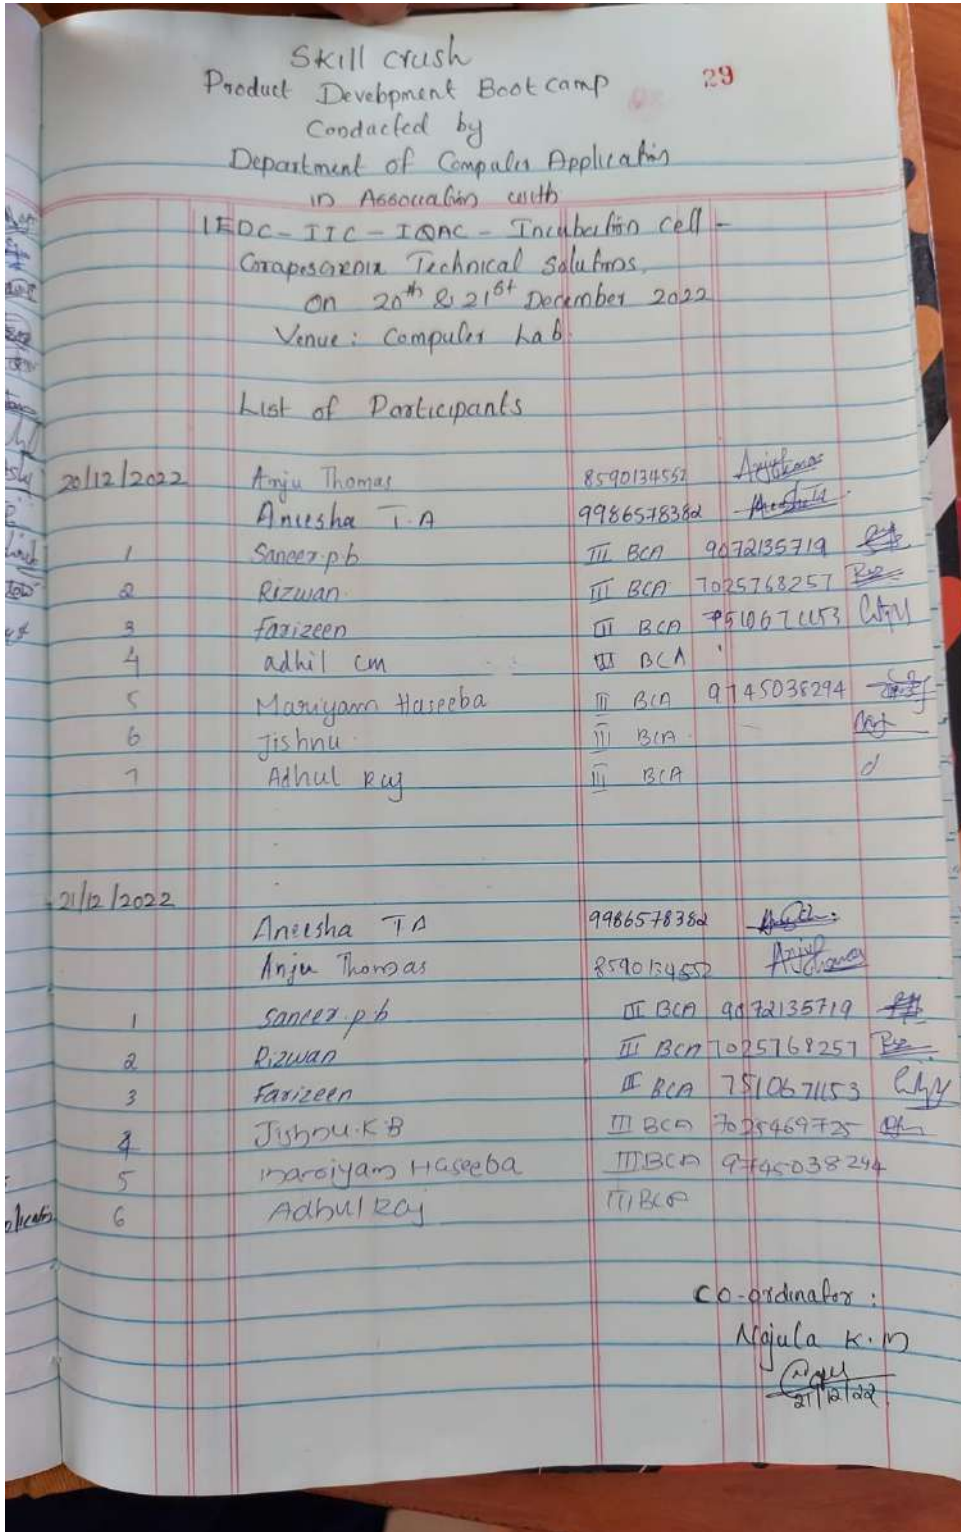 Skill crush
29
Product Development Boot camp
Conducted by
Department of Computer Application
in Association with
IEDC - IIC - IQAC - Incubation Cell -
Technical Solutions,
On 20th & 21st December 2022
Venue : Computer Lab.
List of Participants
20/12/2022 Anju Thomas 8590134552 Anjuthomas
Aneesha T.A 9986578382
1 Saneer.p.b III BCA 9072135719
2 Rizwan. III BCA 7025768257
3 Farizeen III BCA 7510671153
4 adhil cm III BCA
5 Mariyam Haseeba III BCA 9745038294
6 Jishnu. III BCA
7 Adhul Raj III BCA
21/12/2022
Aneesha TA 9986578382
Anju Thomas 8590134552 Anjuthomas
1 Saneer.p.b III BCA 9072135719
2 Rizwan III BCA 7025768257
3 Farizeen III BCA 7510671153
4 Jishnu.K.B III BCA 7025469725
5 mariyam Haseeba III BCA 9745038294
6 Adhul Raj III BCA
Co-ordinator :
Najula K.M
21/12/22